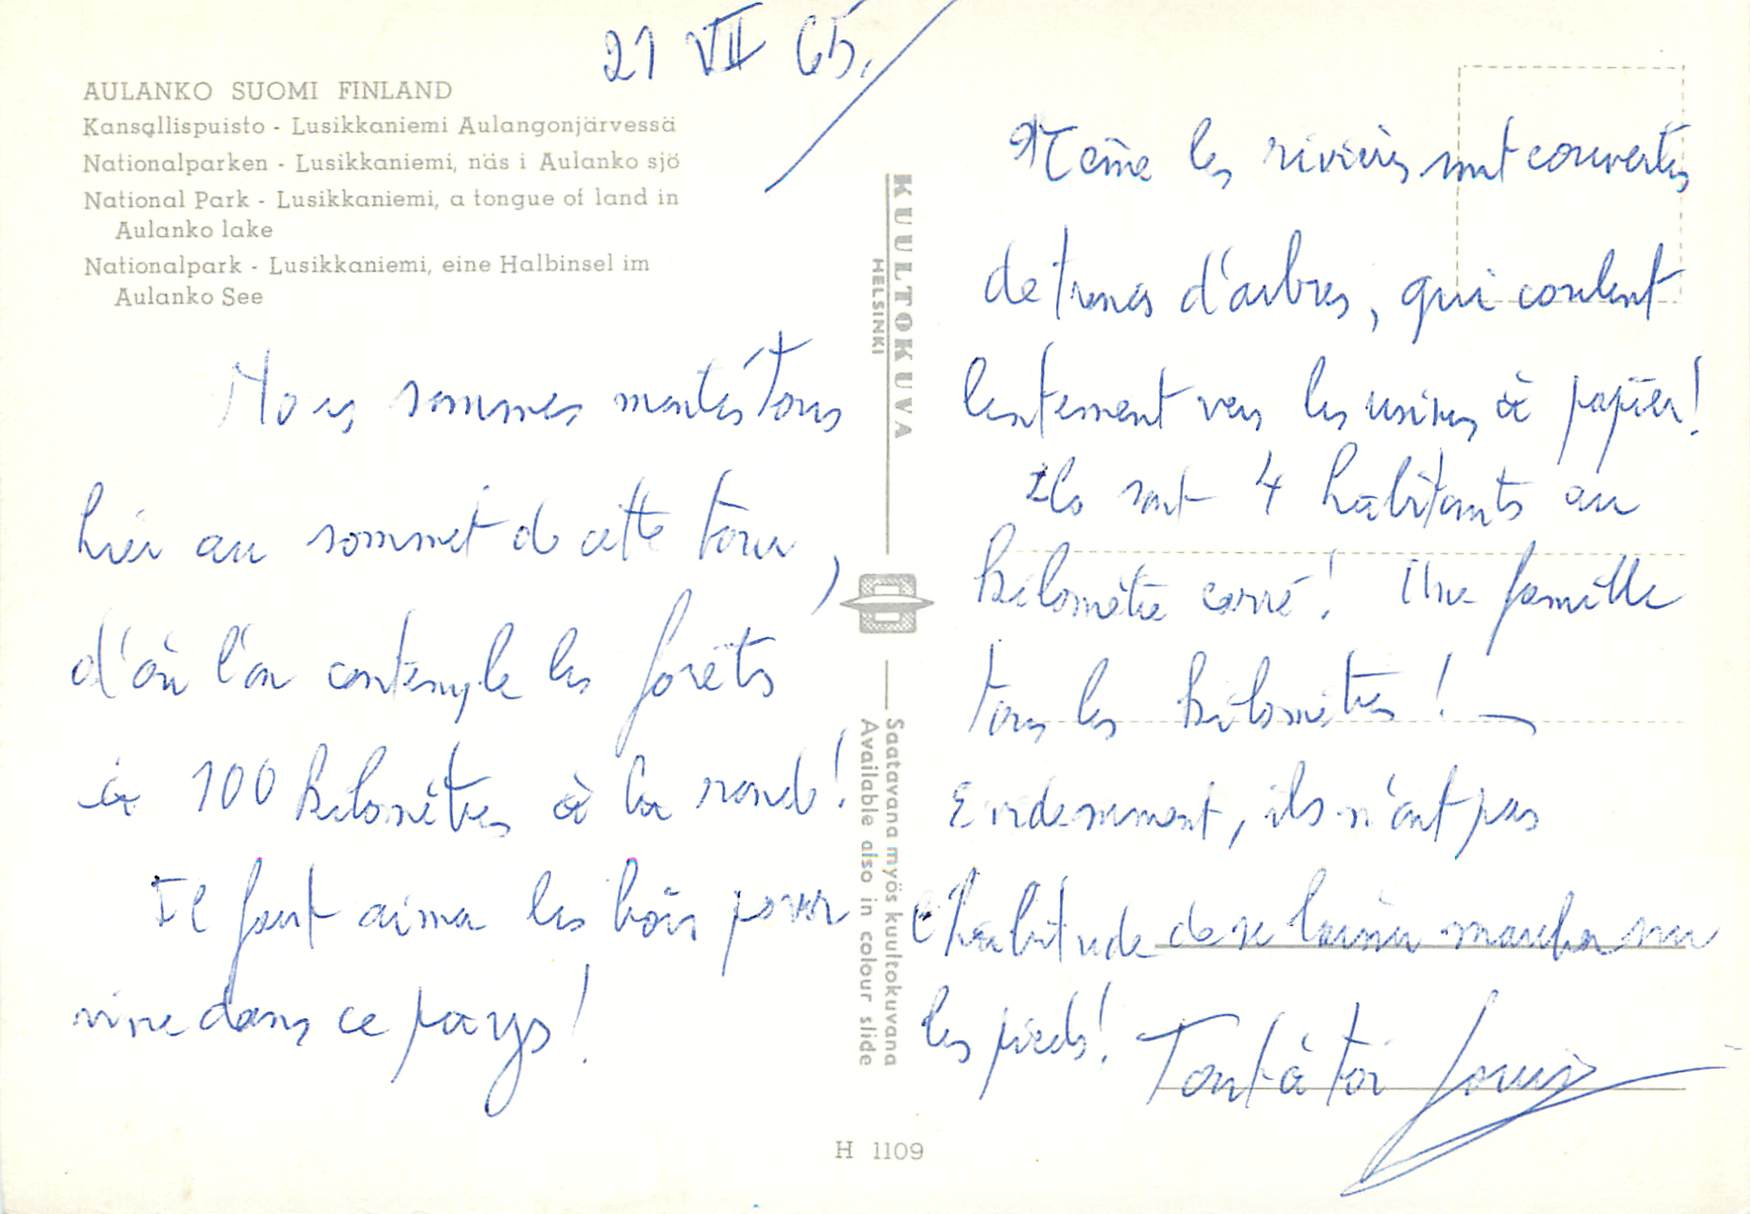 21 VII 65.
AULANKO SUOMI FINLAND
Kansallispuisto - Lusikkaniemi Aulangonjärvessä
Nationalparken - Lusikkaniemi, näs i Aulanko sjö
National Park - Lusikkaniemi, a tongue of land in
Aulanko lake
Nationalpark - Lusikkaniemi, eine Halbinsel im
Aulanko See
Nous sommes montés tous
hier au sommet de cette tour,
d'où l'on contemple les forêts
à 100 kilomètres à la ronde!
Il faut aimer les bois pour
vivre dans ce pays!
KUULTOKUVA
HELSINKI
Saatavana myös kuultokuvana
Available also in colour slide
Même les rivières sont couvertes
de troncs d'arbres, qui coulent
lentement vers les usines à papier!
Ils sont 4 habitants au
kilomètre carré! Une famille
tous les kilomètres! —
Evidemment, ils n'ont pas
l'habitude de se laisser marcher sur
les pieds! Tout à toi Louis
H 1109